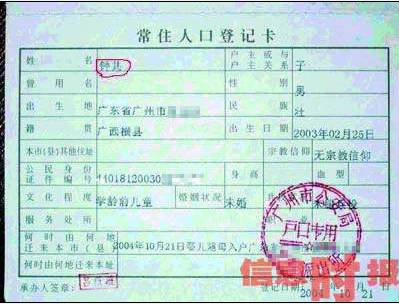 常住人口登记卡
姓名 户主或与户主关系 子
曾用名 性别 男
出生地 广东省广州市 民族 壮
籍贯 广西横县 出生日期 2003年02月25日
本市(县)其他住址 宗教信仰 无宗教信仰
公民身份证件编号 44018120030 身高 血型
文化程度 学龄前儿童 婚姻状况 未婚
服务处所
何时由何地迁来本市(县) 2004年10月21日 随母入户广
何时由何地迁来本址
承办人签章: 2004 10 21
广州市公安局
户口专用
派出所
信息时报